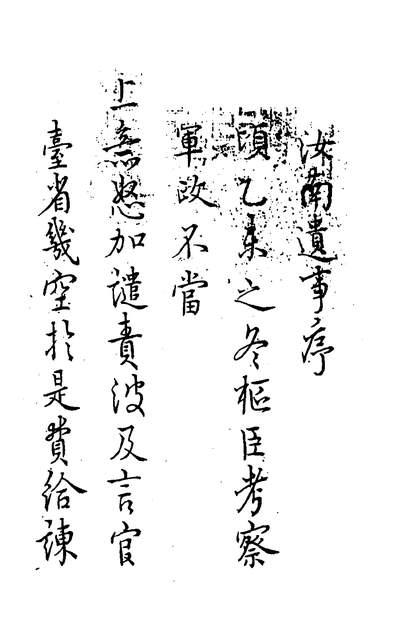 汝南遺事序
頃乙未之冬樞臣考察
軍政不當
上意怒加譴責波及言官
臺省幾空於是費給諫